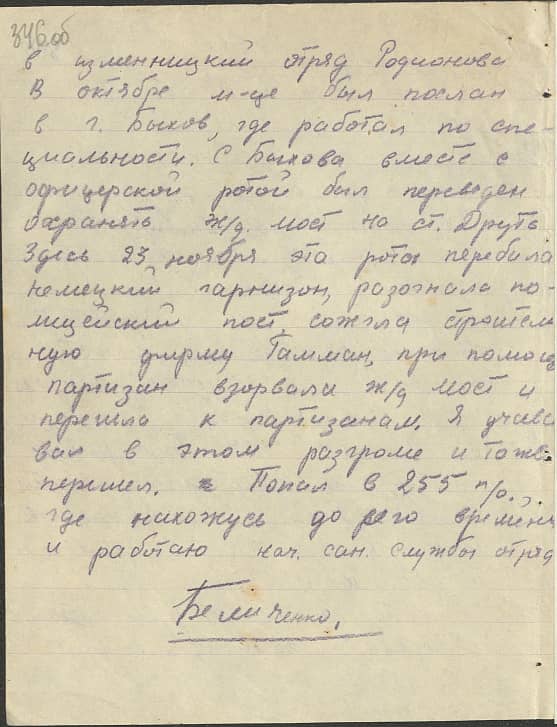 346 об
в изменницкий отряд Родионова
В октябре м-це был послан
в г. Быхов, где работал по спе-
циальности. С Быхова вместе с
офицерской ротой был переведен
охранять ж/д. мост на ст. Друть
Здесь 23 ноября эта рота перебила
немецкий гарнизон, разогнала по-
лицейский пост, сожгла строитель
ную фирму Тамман, при помощи
партизан взорвали ж/д мост и
перешла к партизанам. Я участво
вал в этом разгроме и тоже
перешел. Попал в 255 п/о.,
где нахожусь до сего времени
и работаю нач. сан. службы отряд
Беличенко.